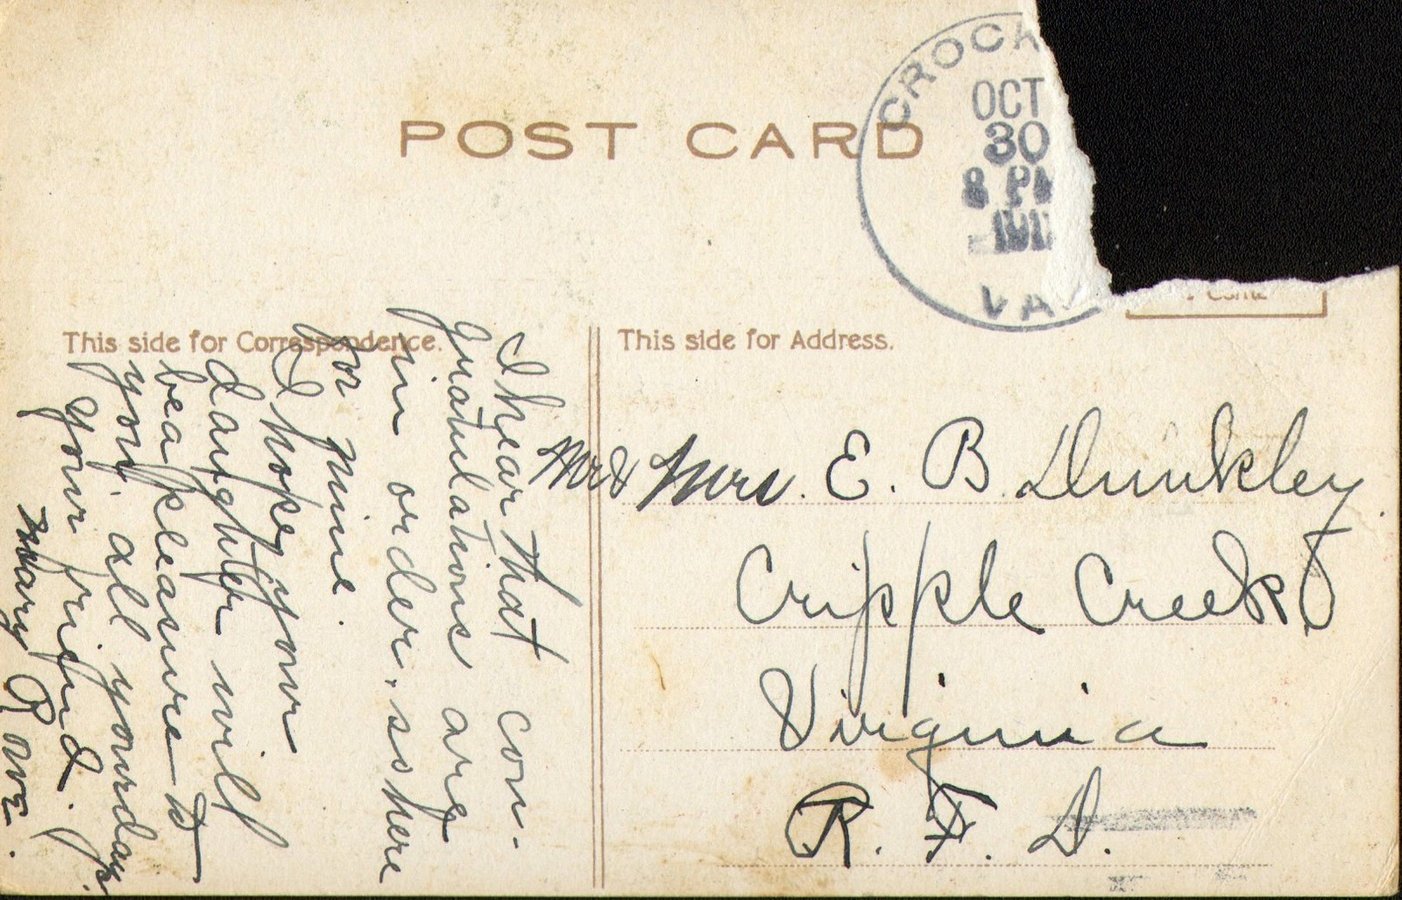 POST CARD
CROCK
OCT
30
8 PM
VA
This side for Correspondence.
This side for Address.
I hear that con-
gratulations are
in order, so here
for mine.
I hope your
daughter will
be a pleasure to
you all your days.
your friend.
Mary
Mr & Mrs. E. B. Dunkley
Cripple Creek
Virginia
R. F. D.